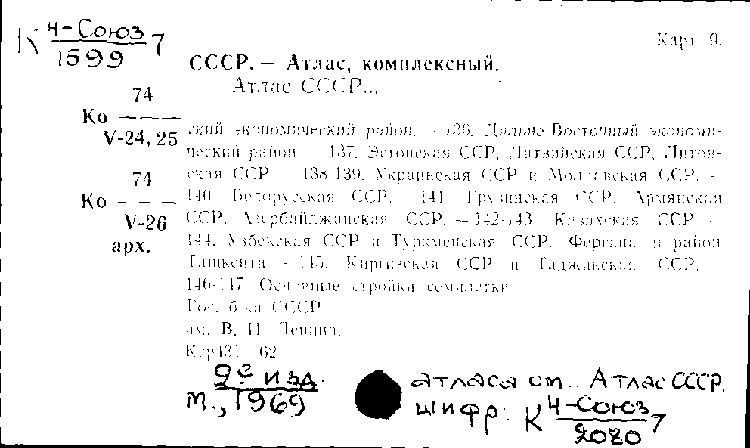 К Ч-Союз 7
1599
Карт 9.
СССР. — Атлас, комплексный.
Атлас СССР...
74
Ко
V-24, 25
74
Ко
V-26
арх.
ский экономический район. - 136. Дальне-Восточный экономи-
ческий район - 137. Эстонская ССР, Латвийская ССР, Литов-
ская ССР - 138-139. Украинская ССР и Молдавская ССР. -
140 Белорусская ССР. - 141 Грузинская ССР, Армянская
ССР, Азербайджанская ССР. — 142-143 Казахская ССР -
144. Узбекская ССР и Туркменская ССР. Фергана и район
Ташкента - 145. Киргизская ССР и Таджикская ССР. -
146-147 Основные стройки семилетки
Гос. б-ка СССР
им. В. И. Ленина.
62
2е изд.
м., 1969
атласа см. Атлас СССР.
шифр: К Ч-Союз 7
2020